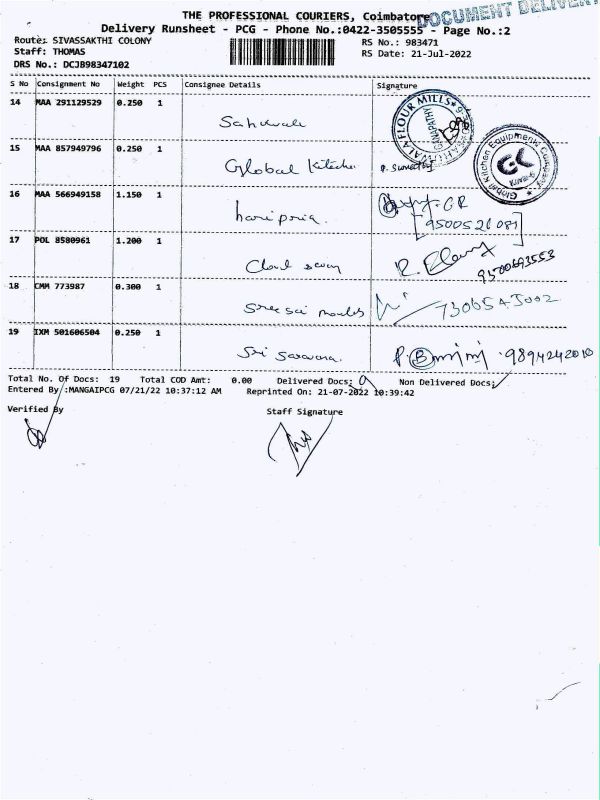 THE PROFESSIONAL COURIERS, Coimbatore
DOCUMENT DELIVERY
Delivery Runsheet - PCG - Phone No.:0422-3505555 - Page No.:2
Route: SIVASSAKTHI COLONY
RS No.: 983471
Staff: THOMAS
RS Date: 21-Jul-2022
DRS No.: DCJB98347102
S No Consignment No Weight PCS Consignee Details Signature
14 MAA 291129529 0.250 1
15 MAA 857949796 0.250 1 Global Kitchen
Global Kitchen Equipments Company
16 MAA 566949158 1.150 1 haripriya.
17 POL 8580961 1.200 1
9500693553
18 CMM 773987 0.300 1 Sree sai
19 IXM 501606504 0.250 1 Sri Saravana.
9894242010
Total No. Of Docs: 19 Total COD Amt: 0.00 Delivered Docs: Non Delivered Docs:
Entered By :MANGAIPCG 07/21/22 10:37:12 AM Reprinted On: 21-07-2022 10:39:42
Verified By Staff Signature